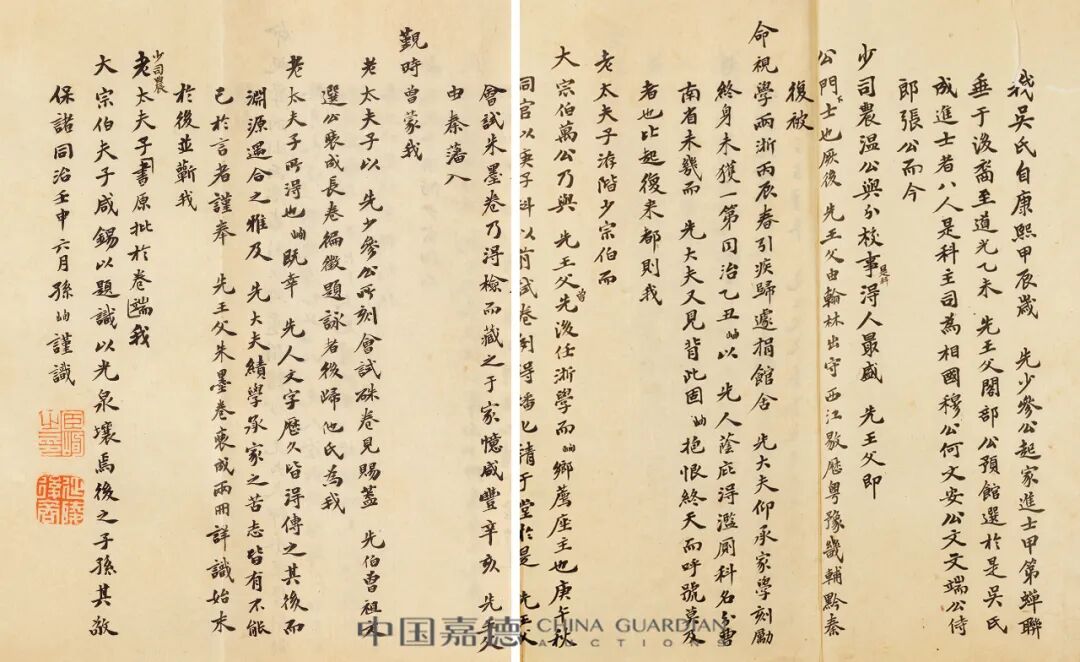 我吳氏自康熙甲辰歲 先少參公起家進士甲第蟬聯
垂于後裔至道光乙未 先王父閣部公預館選於是吳氏
成進士者八人是科主司為相國穆公何文安公文文端公侍
郎張公而今
少司農溫公與分校事是科得人最盛 先王父即
公門下士也厥後 先王父由翰林出守西江敭歷粵豫畿輔黔秦
復被
命視學兩浙丙辰春引疾歸遽捐館舍 先大夫仰承家學刻勵
終身未獲一第同治乙丑岣以 先人蔭庇得濫廁科名分曹
南省未幾而 先大夫又見背此固岣抱恨終天而呼號莫及
者也比起復來都則我
老太夫子洊階少宗伯而
大宗伯萬公乃與 先王父先後曾任浙學而岣鄉薦座主也庚午秋
同官以庚子科以前試卷 得 化積于堂於是 先王父
會試朱墨卷乃得檢而藏之于家憶咸豐辛亥 先王父
由秦藩入
覲時曾蒙我
老太夫子以 先少參公所刻會試硃卷見賜蓋 先伯曾祖木
選公裒成長卷徧徵題詠者後歸他氏為我
老太夫子所得也岣既幸 先人文字歷久皆得傳之其後而
淵源遇合之雅及 先大夫績學承家之苦志皆有不能
已於言者謹奉 先王父朱墨卷裒成兩冊詳識始末
於後並蘄我
少司農老太夫子書原批於卷端我
大宗伯夫子咸錫以題識以光泉壤焉後之子孫其敬
保諸同治壬申六月孫岣謹識
臣岣之印
中国嘉德 CHINA GUARDIAN
AUCTIONS